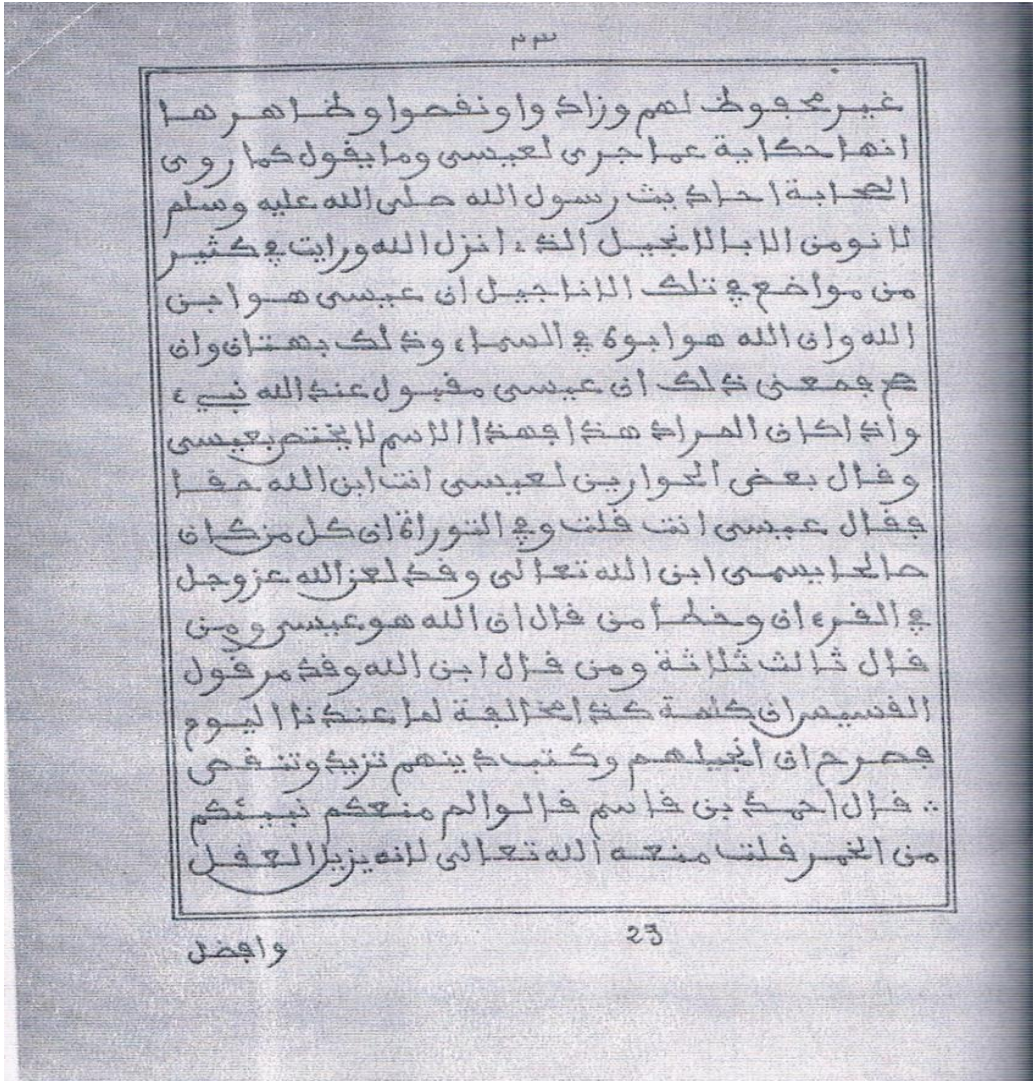 ٢٣
غير محفوظ لهم وزادوا ونقصوا وظاهرها
انها حكاية عما جرى لعيسى وما يقول كما روى
الصحابة احاديث رسول الله صلى الله عليه وسلم
لا نومن الا بالانجيل الذى انزل الله ورايت في كثير
من مواضع في تلك الاناجيل ان عيسى هو ابن
الله وان الله هو ابوه في السماء وذلك بهتان وان
صح فمعنى ذلك ان عيسى مقبول عند الله نبيء
واذا كان المراد هذا فهذا الاسم لا يختص بعيسى
وقال بعض الحوارين لعيسى انت ابن الله حقا
فقال عيسى انت قلت وفي التوراة ان كل من كان
صالحا يسمى ابن الله تعالى وقد لعن الله عز وجل
في القرءان وخطأ من قال ان الله هو عيسى ومن
قال ثالث ثلاثة ومن قال ابن الله وقد مر قول
القسيس ان كلمة كذا مخالفة لما عندنا اليوم
فصرح ان انجيلهم وكتب دينهم تزيد وتنقص
∴ قال احمد بن قاسم قالوا لم منعكم نبيئكم
من الخمر قلت منعه الله تعالى لانه يزيل العقل
23
وافضل